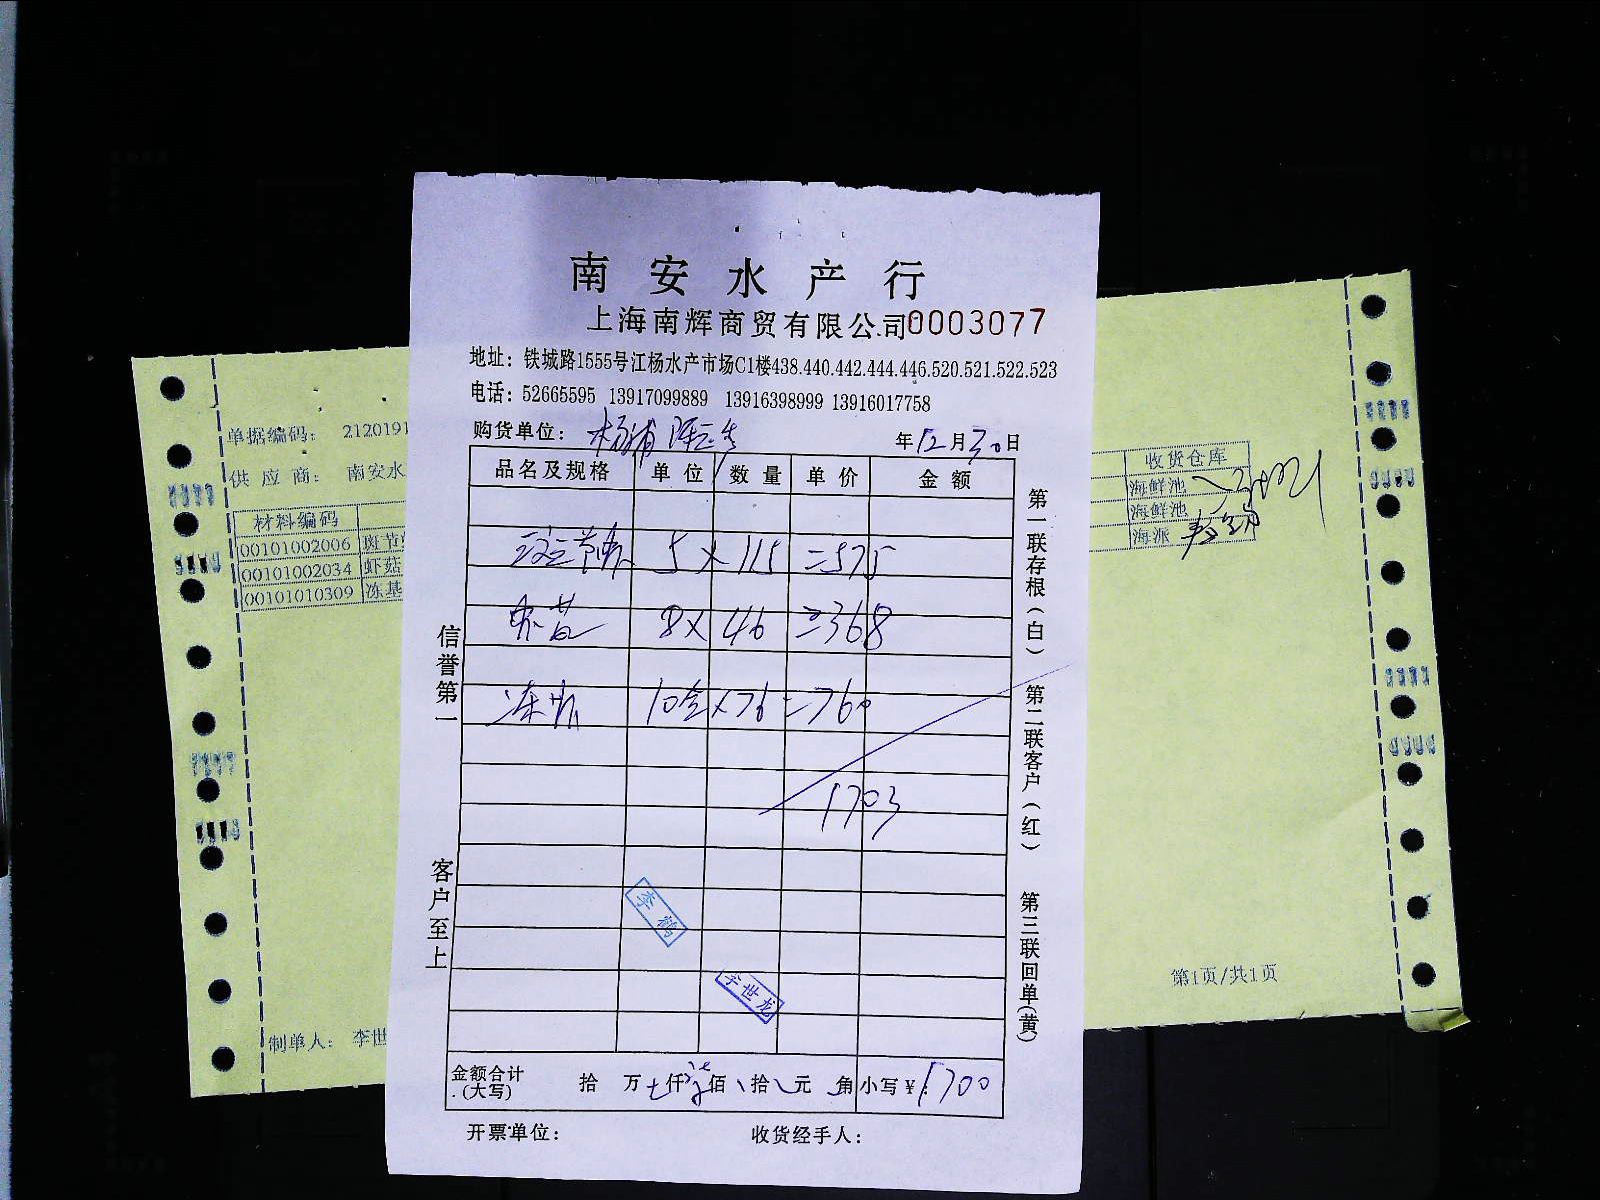 南安水产行
上海南辉商贸有限公司0003077
地址：铁城路1555号江杨水产市场C1楼438.440.442.444.446.520.521.522.523
电话：52665595 13917099889 13916398999 13916017758
购货单位：杨浦 年12月30日
品名及规格 单位 数量 单价 金额
斑节虾 5×115=575
虾菇 8×46=368
冻 10盒×76=760
1703
李鹤
李世龙
金额合计(大写) 拾 万 仟 佰 拾 元 角 小写¥:1700
开票单位： 收货经手人：
信誉第一
客户至上
第一联存根(白)
第二联客户(红)
第三联回单(黄)
单据编码： 2120191
供应商： 南安水
材料编码
00101002006 斑节
00101002034 虾菇
00101010309 冻基
制单人： 李世
收货仓库
海鲜池
海鲜池
海派
第1页/共1页